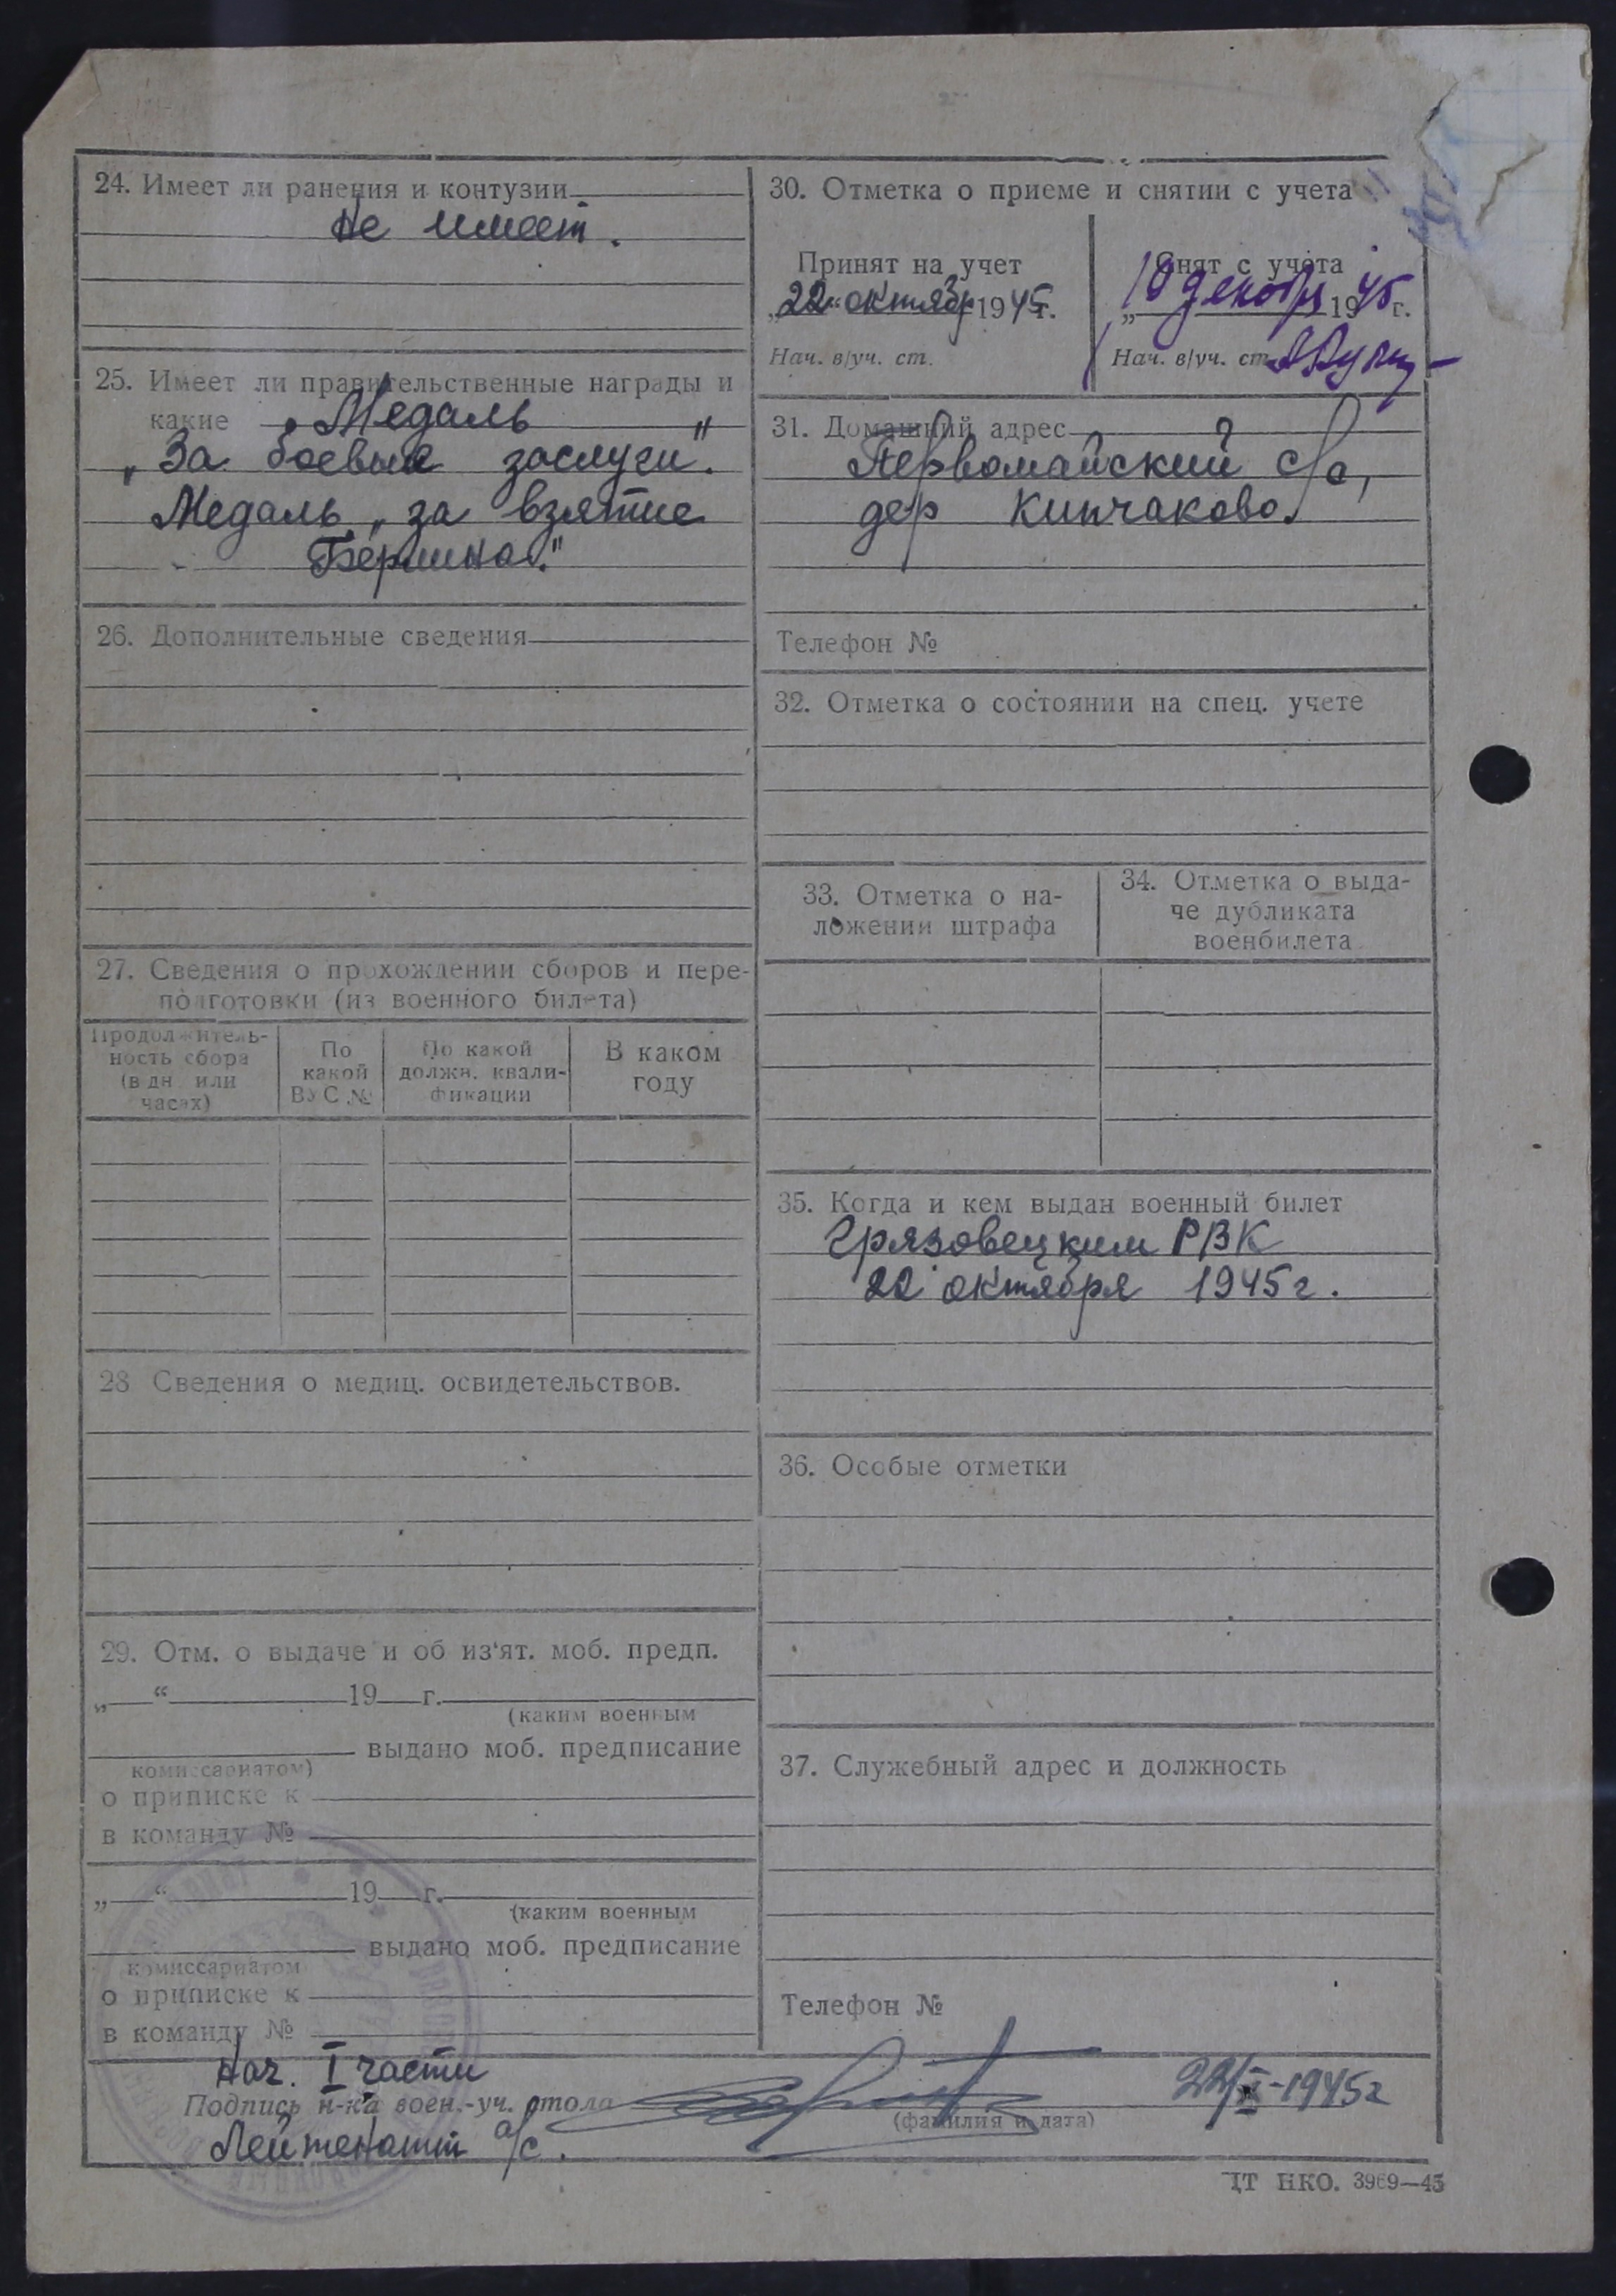 24. Имеет ли ранения и контузии
Не имеет.
25. Имеет ли правительственные награды и
какие Медаль
„За боевые заслуги".
Медаль „за взятие
Берлина."
26. Дополнительные сведения
27. Сведения о прохождении сборов и пере-
подготовки (из военного билета)
Продолжитель-
ность сбора
(в дн. или
часах)
По
какой
ВУС №
По какой
должн. квали-
фикации
В каком
году
28 Сведения о медиц. освидетельствов.
29. Отм. о выдаче и об из'ят. моб. предп.
„ “ 19 г.
(каким военным
выдано моб. предписание
комиссариатом)
о приписке к
в команду №
„ “ 19 г.
(каким военным
выдано моб. предписание
комиссариатом
о приписке к
в команду №
30. Отметка о приеме и снятии с учета
Принят на учет
„22“ октябр 1945г.
Нач. в/уч. ст.
Снят с учета
„10 декабря 1945 г.
Нач. в/уч. ст.
31. Домашний адрес
Первомайский с/с,
дер Кипчаково.
Телефон №
32. Отметка о состоянии на спец. учете
33. Отметка о на-
ложении штрафа
34. Отметка о выда-
че дубликата
военбилета
35. Когда и кем выдан военный билет
Грязовецким РВК
22 октября 1945г.
36. Особые отметки
37. Служебный адрес и должность
Телефон №
Нач. I части
Подпись н-ка воен.-уч. стола
(фамилия и дата)
22/X-1945г
Лейтенант а/с.
ЦТ НКО. 3969—45